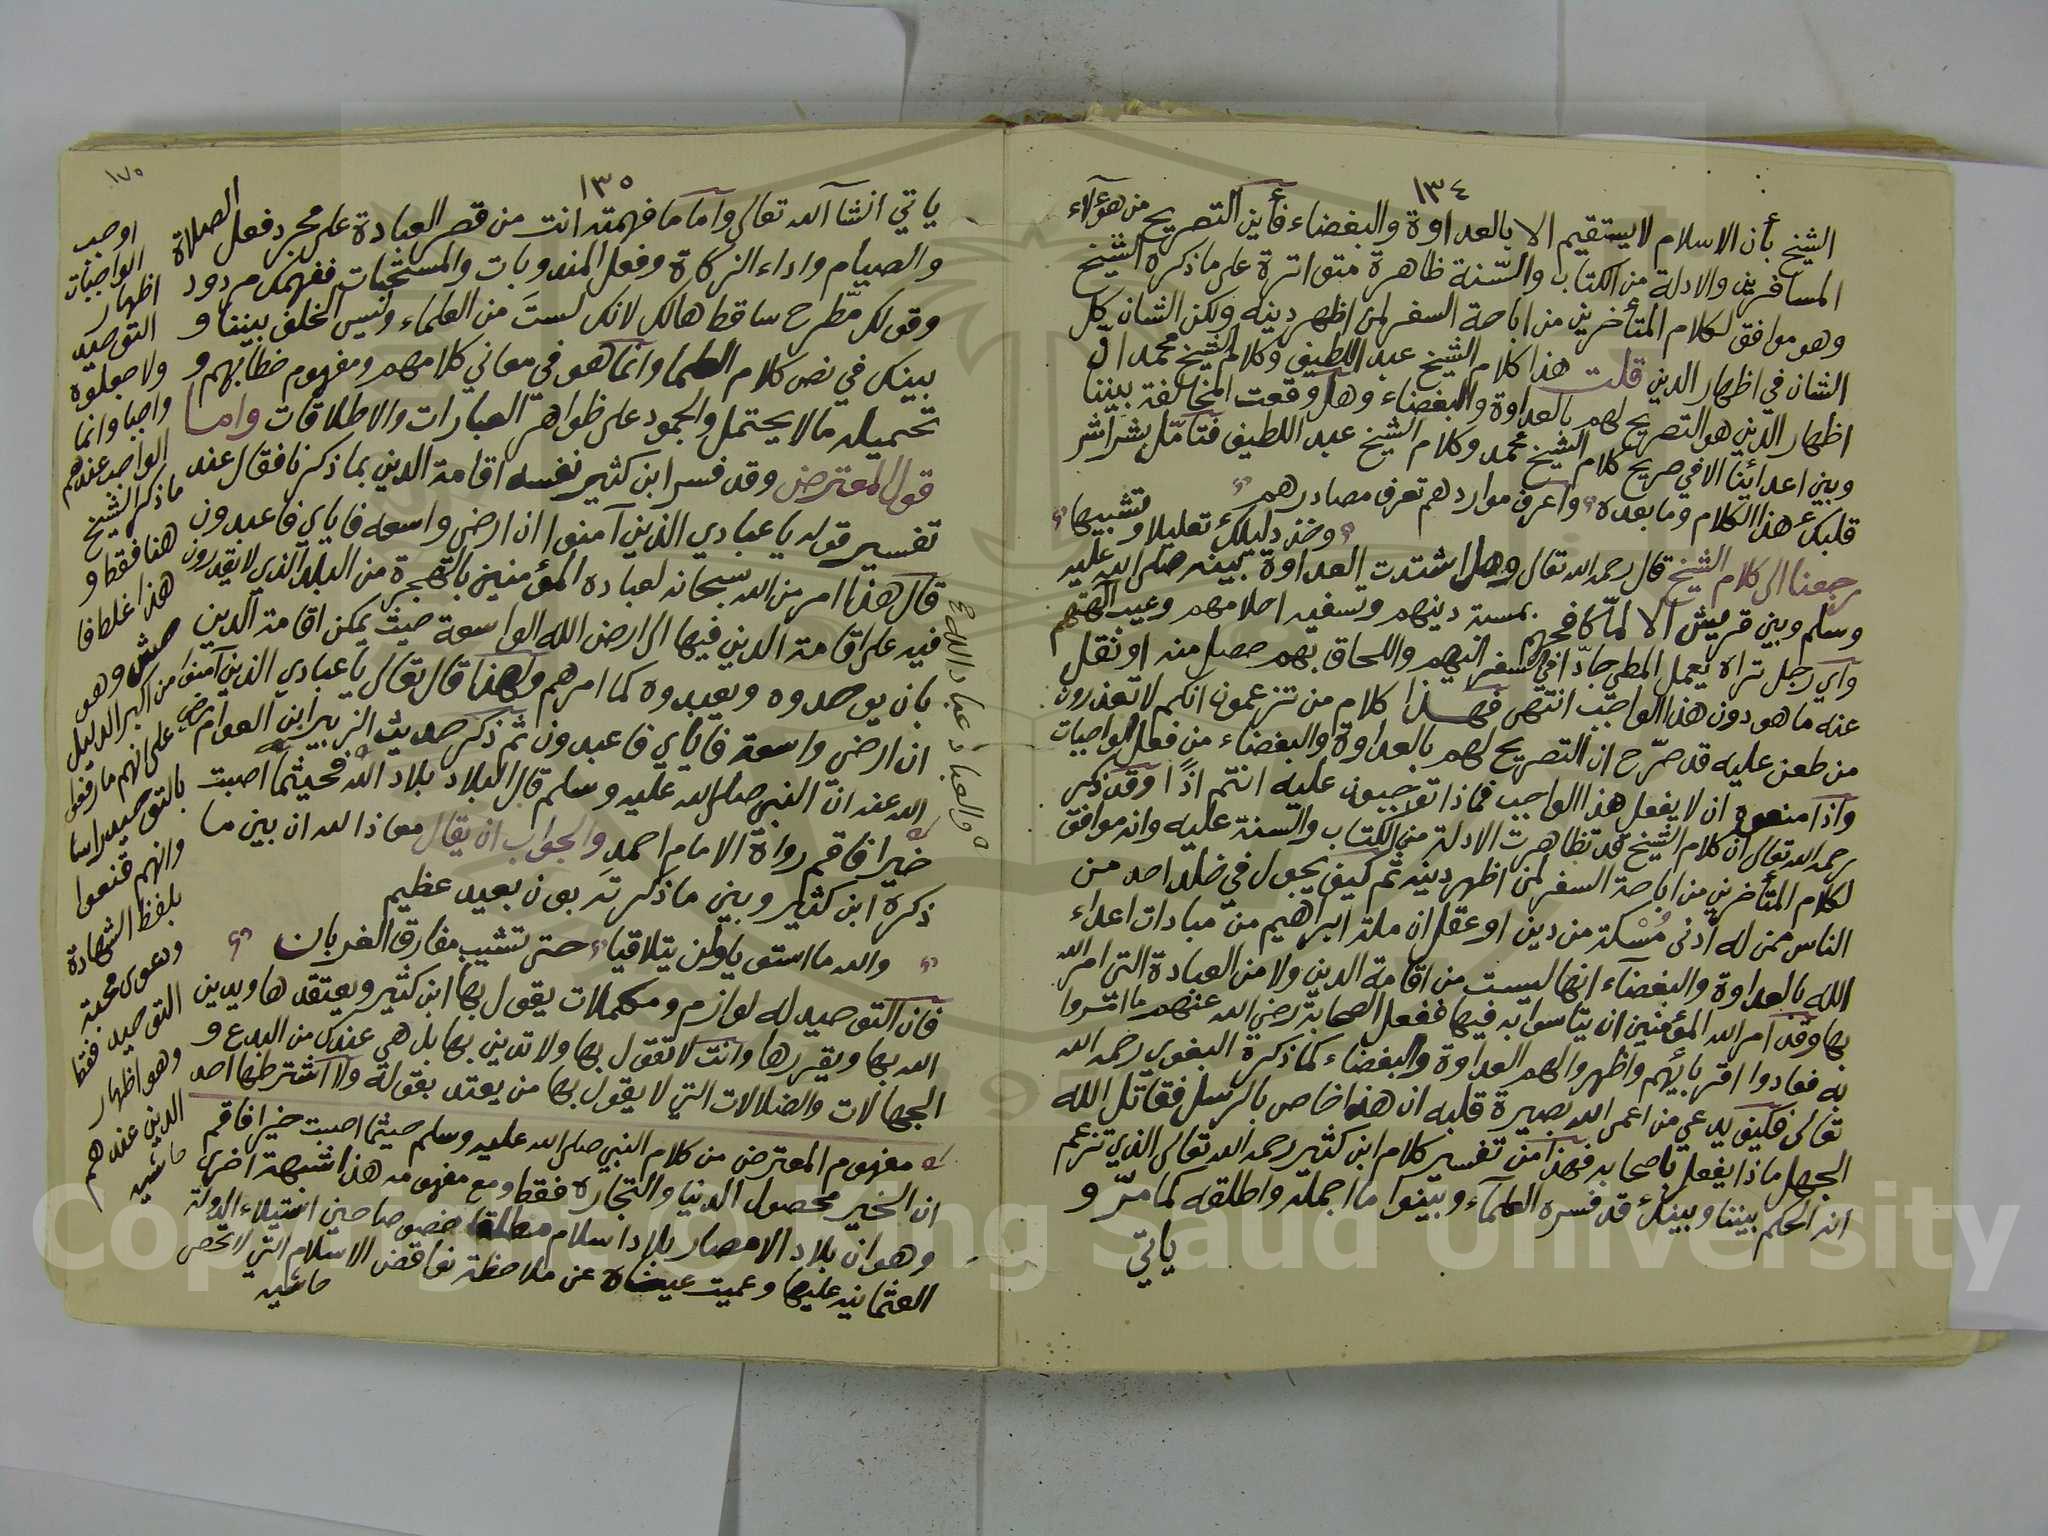 ١٣٤
الشيخ بأن الاسلام لا يستقيم الا بالعداوة والبغضاء فأين التصريح من هؤلاء
المسافرين والادلة من الكتاب والسّنة ظاهرة متواترة على ما ذكره الشيخ
وهو موافق لكلام المتأخرين من اباحة السفر لمن اظهر دينه ولكن الشان كل
الشان في اظهار الدين قلت هذا كلام الشيخ عبد اللطيف وكلام الشيخ محمد ان
اظهار الدين هو التصريح لهم بالعداوة والبغضاء وهل وقعت المخالفة بيننا
وبين اعدائنا الا في صريح كلام الشيخ محمد وكلام الشيخ عبد اللطيف فتأمّل بشراشر
قلبك هذا الكلام وما بعده واعرف مواردهم تعرف مصادرهم
وخذ دليلك تعليلا وتشبيها
رجعنا الى كلام الشيخ قال رحمه الله تعالى وهل اشتدت العداوة بينه صلى الله عليه
وسلم وبين قريش الا لمّا كافحهم بمسبة دينهم وتسفيه احلامهم وعيب آلهتهم
واي رجل تراه يعمل المطي جادّا في السفر اليهم واللحاق بهم حصل منه او نقل
عنه ما هو دون هذا الواجب انتهى فهذا كلام من تزعمون انكم لا تعذرون
من طعن عليه قد صرّح ان التصريح لهم بالعداوة والبغضاء من فعل الواجبات
واذا منعوه ان لا يفعل هذا الواجب فماذا توجبون عليه انتم اذًا وقد ذكر
رحمه الله تعالى ان كلام الشيخ قد تظاهرت الادلة من الكتاب والسنة عليه وانه موافق
لكلام المتأخرين من اباحة السفر لمن اظهر دينه ثم كيف يجول في خلد احد من
الناس ممن له أدنى مُسْكة من دين او عقل ان ملة ابراهيم من مبادات اعداء
الله بالعداوة والبغضاء انها ليست من اقامة الدين ولا من العبادة التي امر الله
بها وقد امر الله المؤمنين ان يتأسوا به فيها ففعل الصحابة رضي الله عنهم ما امروا
به فعادوا اقربائهم واظهروا لهم العداوة والبغضاء كما ذكره البغوي رحمه الله
تعالى فكيف يدعي من اعمى الله بصيرة قلبه ان هذا خاص بالرسل فقاتل الله
الجهل ماذا يفعل باصحابه فهذا من تفسير كلام ابن كثير رحمه الله تعالى الذي تزعم
انه الحكم بيننا وبينك قد فسره العلماء وبينوا ما اجمله واطلقه كما مرّ و
ياتي
١٣٥
١٧٥
ياتي انشاء الله تعالى واما ما فهمته انت من قصر العبادة على مجرد فعل الصلاة
والصيام واداء الزكاة وفعل المندوبات والمستحبات ففهمك مردود
وقولك مطّرح ساقط هالك لانك لستَ من العلماء وليس الخلف بيننا و
بينك في نص كلام العلما وانما هو في معاني كلامهم ومفهوم خطابهم و
تحميله ما لا يحتمل والجمود على ظواهر العبارات والاطلاقات واما
قول المعترض وقد فسر ابن كثير نفسه اقامة الدين بما ذكرنا فقال عند
تفسير قوله يا عبادي الذين آمنوا ان ارضي واسعه فاياي فاعبدون
قال هذا امر من الله سبحانه لعباده المؤمنين بالهجرة من البلد الذي لا يقدرون
فيه على اقامة الدين فيها الى ارض الله الواسعة حيث يمكن اقامة الدين
بان يوحدوه ويعبدوه كما امرهم ولهذا قال تعالى يا عبادي الذين آمنوا
ان ارضي واسعة فاياي فاعبدون ثم ذكر حديث الزبير ابن العوام رضي
الله عنه انّ النبي صلى الله عليه وسلم قال البلاد بلاد الله فحيثما اصبت
خيرا فاقم رواه الامام احمد والجواب ان يقال معاذ الله ان بين ما
ذكره ابن كثير وبين ما ذكرته بون بعيد عظيم
والله ما استويا ولن يتلاقيا حتى تشيب مفارق الغربان
فان التوحيد له لوازم ومكملات يقول بها ابن كثير ويعتقدها ويدين
الله بها ويقررها وانت لا تقول بها ولا تدين بها بل هي عندك من البدع و
الجهالات والضلالات التي لا يقول بها من يعتد بقوله ولا اشترطها احد
مفهوم المعترض من كلام النبي صلى الله عليه وسلم حيثما اصبت خيرا فاقم
ان الخير محصول الدنيا والتجاره فقط ومع مفهومه هذا شبهة اخرى
وهو ان بلاد الامصار بلاد اسلام مطلقا خصوصا حين استيلاء الدولة
العثمانيه عليها وعميت عيناه عن ملاحظة نواقض الاسلام التي لا تحصى
حاشيه
والعباد عباد الله
اوجب
الواجبات
اظهار
التوحيد
ولا جعلوه
واجبا وانما
الواجب عندهم
ما ذكر الشيخ
هنا فقط و
هذا غلط فا
حش وهو
من اكبر الدليل
على انهم ما رفعوا
بالتوحيد راسا
وانهم قنعوا
بلفظ الشهادة
ودعوى محبة
التوحيد فقط
وهو اظهار
الدين عندهم
حاشيه
Copyright © King Saud University